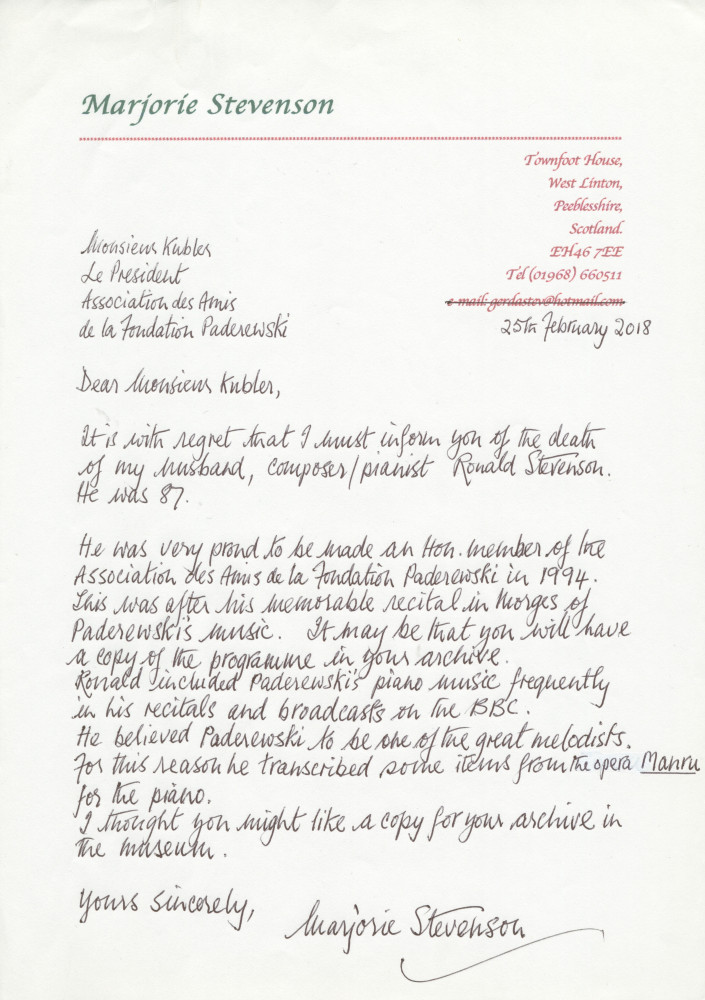 Marjorie Stevenson
Townfoot House,
West Linton,
Peeblesshire,
Scotland.
EH46 7EE
Tel (01968) 660511
e-mail: gerdastev@hotmail.com
25th February 2018
Monsieur Kubler
Le President
Association des Amis
de la Fondation Paderewski
Dear Monsieur Kubler,
It is with regret that I must inform you of the death
of my husband, composer/pianist Ronald Stevenson.
He was 87.
He was very proud to be made an Hon. member of the
Association des Amis de la Fondation Paderewski in 1994.
This was after his memorable recital in Morges of
Paderewski's music. It may be that you will have
a copy of the programme in your archive.
Ronald included Paderewski's piano music frequently
in his recitals and broadcasts on the BBC.
He believed Paderewski to be one of the great melodists.
For this reason he transcribed some items from the opera Manru
for the piano.
I thought you might like a copy for your archive in
the museum.
Yours sincerely,
Marjorie Stevenson